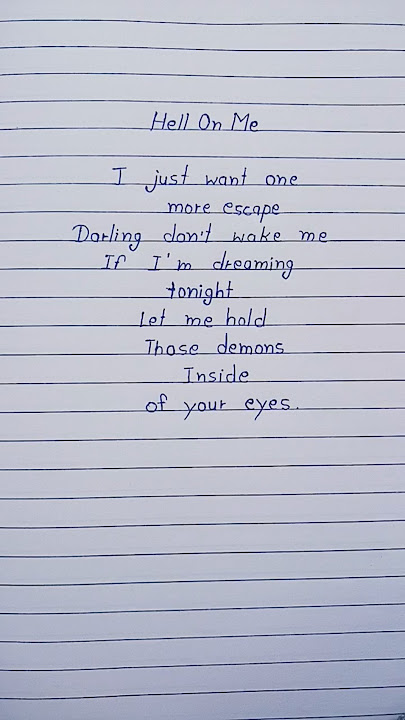 Hell On Me
I just want one
more escape
Darling don't wake me
If I'm dreaming
tonight
Let me hold
Those demons
Inside
of your eyes.